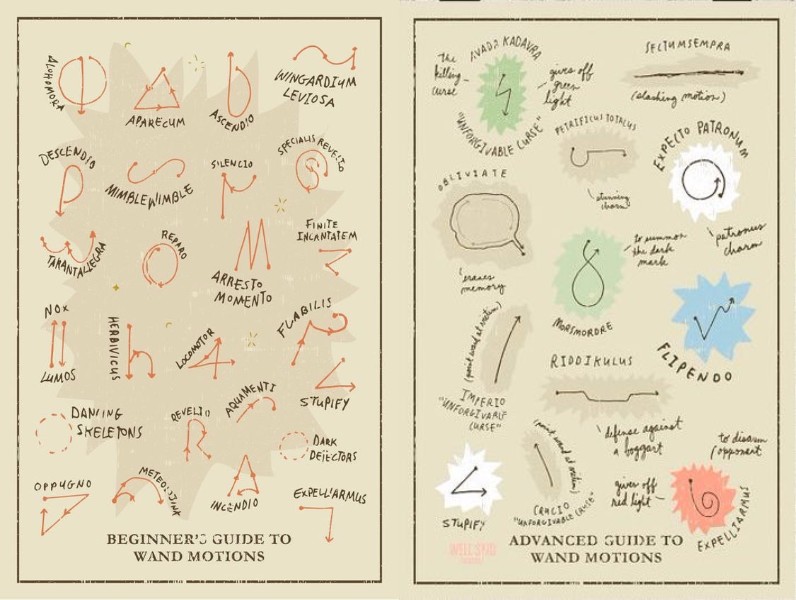 ALOHOMORA
APARECUM
ASCENDIO
WINGARDIUM
LEVIOSA
DESCENDIO
MIMBLEWIMBLE
SILENCIO
SPECIALIS REVELIO
TARANTALLEGRA
REPARO
ARRESTO
MOMENTO
FINITE
INCANTATEM
NOX
LUMOS
HERBIVICUS
LOCOMOTOR
FLABILIS
STUPIFY
DANCING
SKELETONS
REVELIO
AQUAMENTI
DARK
DETECTORS
OPPUGNO
METEOLOJINX
INCENDIO
EXPELLIARMUS
BEGINNER'S GUIDE TO
WAND MOTIONS
AVADA KADAVRA
the
killing
curse
gives off
green
light
"UNFORGIVABLE CURSE"
SECTUMSEMPRA
(slashing motion)
PETRIFICUS TOTALUS
stunning
charm
EXPECTO PATRONUM
patronus
charm
OBLIVIATE
erases
memory
to summon
the dark
mark
MORSMORDRE
FLIPENDO
(point wand at victim)
IMPERIO
"UNFORGIVABLE
CURSE"
RIDDIKULUS
defense against
a boggart
STUPIFY
(point wand at victim)
CRUCIO
"UNFORGIVABLE CURSE"
to disarm
opponent
gives off
red light
EXPELLIARMUS
ADVANCED GUIDE TO
WAND MOTIONS